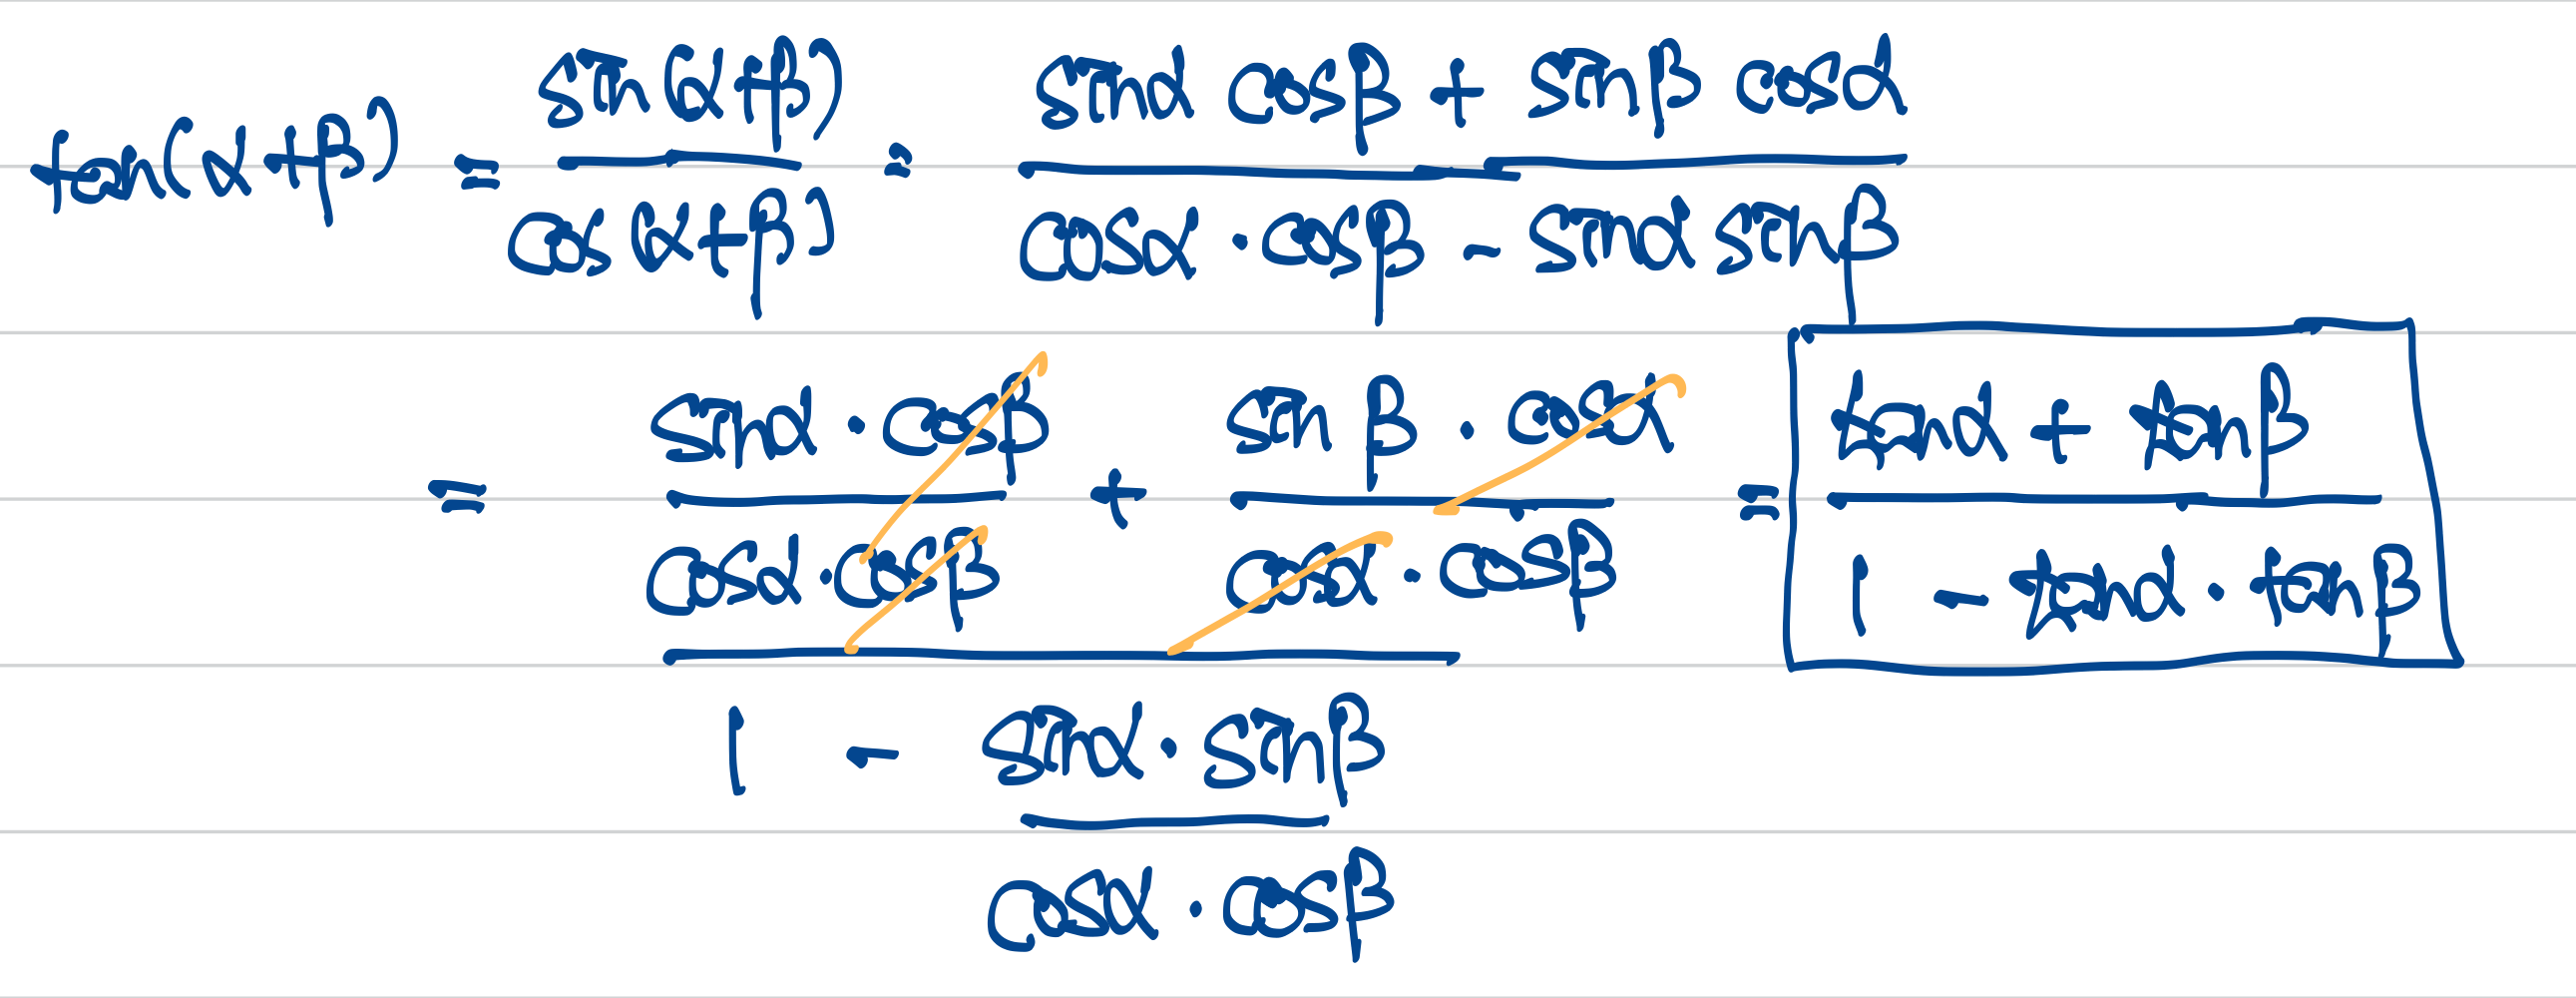 tan(α+β) = sin(α+β) / cos(α+β) = (sinα cosβ + sinβ cosα) / (cosα · cosβ - sinα sinβ)
= ((sinα · cosβ) / (cosα · cosβ) + (sin β · cosα) / (cosα · cosβ)) / (1 - (sinα · sinβ) / (cosα · cosβ)) = (tanα + tanβ) / (1 - tanα · tanβ)